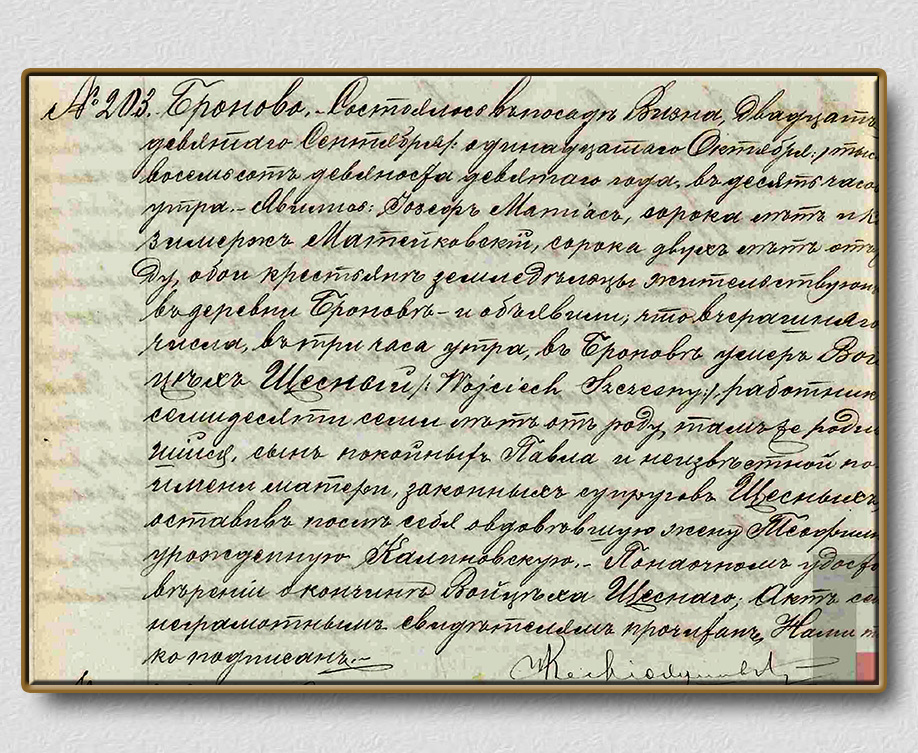 № 203. Броново.- Состоялось въ посадѣ Визна, двадцать
девятаго Сентября /: одинадцатаго Октября :/ тыс
восемьсотъ девяноста девятаго года, въ десять часо
утра.- Явились: Іозефъ Матіасъ, сорока лѣтъ и К
зимержъ Матейковскій, сорока двухъ лѣтъ отъ
ду, обои крестьяне земледѣльцы жительствующ
въ деревни Броновѣ - и объявили, что вчерашняго
числа, въ три часа утра, въ Броновѣ умеръ Вой
цѣхъ Щесный /: Wojciech Szczesny :/ работник
семидесяти семи лѣтъ отъ роду, тамъ же роди
шийся, сынъ покойныхъ Павла и неизвѣстной по
имени матери, законныхъ супруговъ Щесныхъ,
оставивъ послѣ себя овдовѣвшую жену Теофилю
урожденную Калиновскую.- По наочномъ удосто
вѣреніи о кончинѣ Войцѣха Щеснаго, Актъ сей
неграмотнымъ свидѣтелямъ прочитанъ, Нами т
ко подписанъ.-